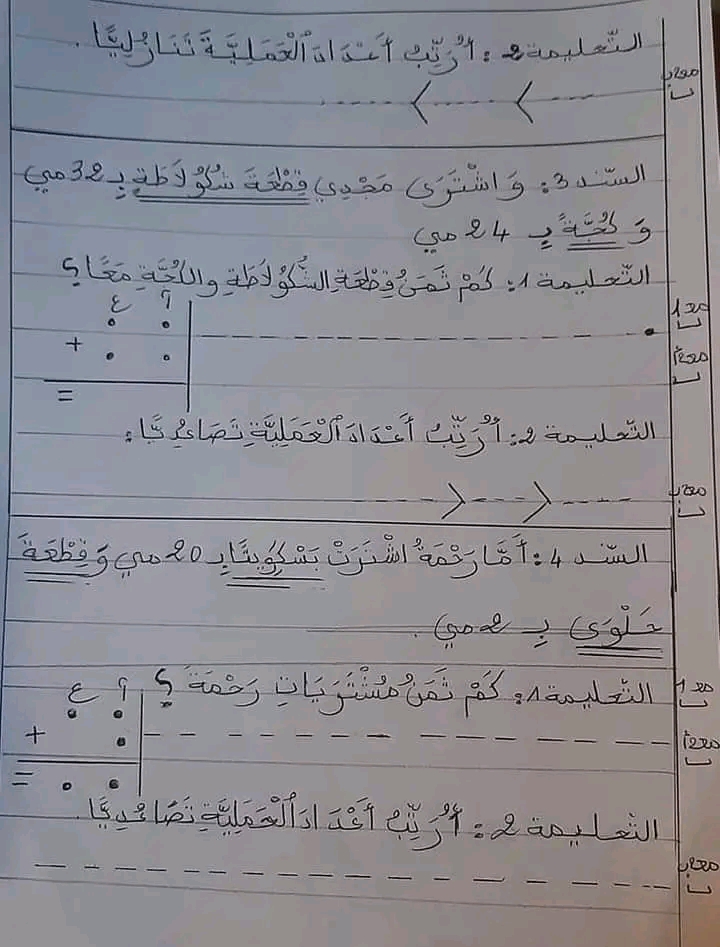 التّعليمة 2: أُرَتِّبُ أَعْدَادَ الْعَمَلِيَّةِ تَنَازُلِيًّا.
السّند 3: وَاشْتَرَى مَجْدِي قِطْعَةَ شُكُولَاطَةٍ بِـ 32 مي
وَ كُجَّةً بِـ 24 مي
التّعليمة 1: كَمْ ثَمَنُ قِطْعَةِ الشُّكُولَاطَةِ والكُجَّةِ مَعًا؟
ع أ
+
=
التّعليمة 2: أُرَتِّبُ أَعْدَادَ الْعَمَلِيَّةِ تَصَاعُدِيًّا:
السّند 4: أَمَّا رَحْمَةُ اشْتَرَتْ بَسْكِوِيتًا بِـ 20 مي وَقِطْعَةَ
حَلْوَى بِـ 2 مي.
التّعليمة 1: كَمْ ثَمَنُ مُشْتَرَيَاتِ رَحْمَةَ؟
ع أ
+
=
التّعليمة 2: أُرَتِّبُ أَعْدَادَ الْعَمَلِيَّةِ تَصَاعُدِيًّا.